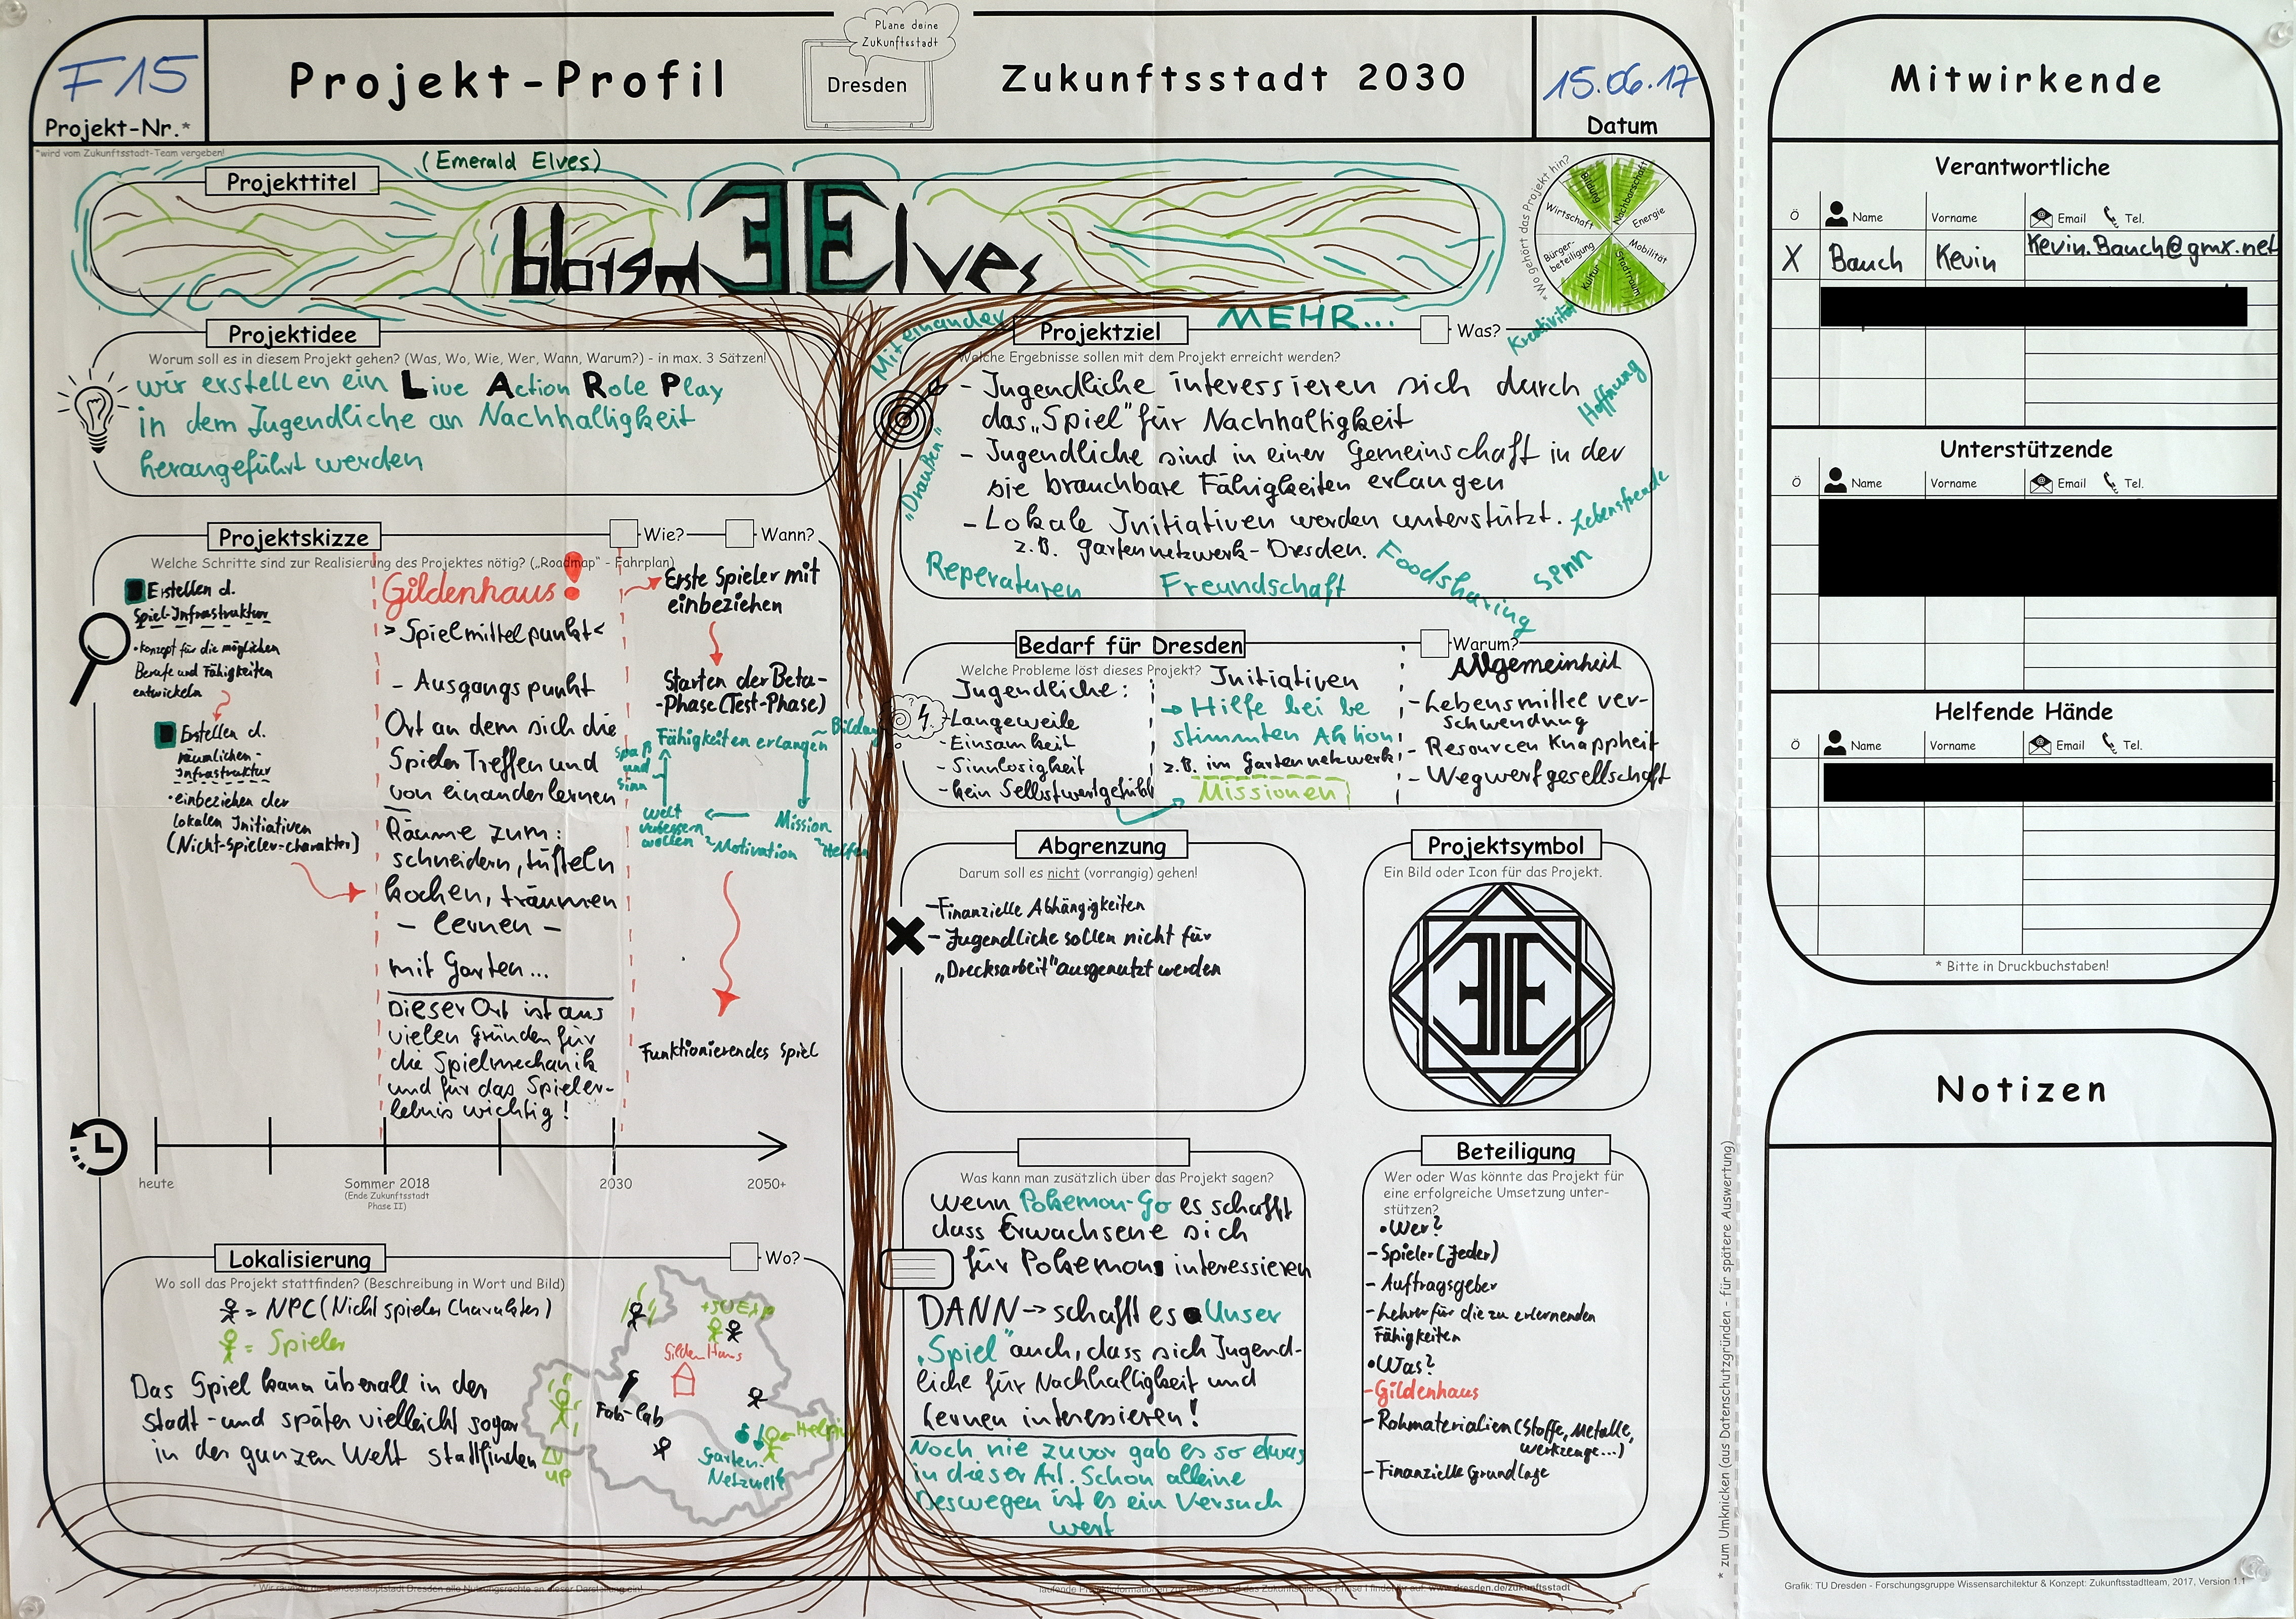 F15
Projekt-Nr.*
*wird vom Zukunftsstadt-Team vergeben!
Projekt-Profil
Plane deine
Zukunftsstadt
Dresden
Zukunftsstadt 2030
15.06.17
Datum
(Emerald Elves)
Projekttitel
Elves
*Wo gehört das Projekt hin?
Bildung
Nachbarschaft
Wirtschaft
Energie
Bürger-
beteiligung
Mobilität
Kultur
Stadtraum
Projektidee
Worum soll es in diesem Projekt gehen? (Was, Wo, Wie, Wer, Wann, Warum?) - in max. 3 Sätzen!
wir erstellen ein Live Action Role Play
in dem Jugendliche an Nachhaltigkeit
herangeführt werden
Projektskizze
Wie?
Wann?
Welche Schritte sind zur Realisierung des Projektes nötig? („Roadmap" - Fahrplan)
Erstellen d.
Spiel-Infrastruktur
•Konzept für die möglichen
Berufe und Fähigkeiten
entwickeln
Erstellen d.
räumlichen-
Infrastruktur
•einbeziehen der
lokalen Initiativen
(Nicht-Spieler-charakter)
Gildenhaus!
>Spielmittelpunkt<
- Ausgangspunkt
Ort an dem sich die
Spieler Treffen und
von einander lernen
Räume zum:
schneidern, tüfteln
kochen, träumen
- lernen -
mit Garten...
Dieser Ort ist aus
vielen Gründen für
die Spielmechanik
und für das Spieler-
lebnis wichtig!
Erste Spieler mit
einbeziehen
Starten der Beta-
-Phase (Test-Phase)
Fähigkeiten erlangen
~ Bildung
Spaß
und
Sinn
Welt
verbessern
wollen
~Motivation
Mission
~Helfen
Funktionierendes Spiel
heute
Sommer 2018
(Ende Zukunftsstadt
Phase II)
2030
2050+
Lokalisierung
Wo?
Wo soll das Projekt stattfinden? (Beschreibung in Wort und Bild)
= NPC (Nicht spieler Charakter)
= Spieler
Das Spiel kann überall in der
Stadt - und später vielleicht sogar
in der ganzen Welt stattfinden
Gilden Haus
Fab-lab
Garten-
Netzwerk
UP
Miteinander
MEHR...
Kreativität
Hoffnung
„Draußen"
Lebensfreude
Projektziel
Was?
Welche Ergebnisse sollen mit dem Projekt erreicht werden?
- Jugendliche interessieren sich durch
das „Spiel" für Nachhaltigkeit
- Jugendliche sind in einer Gemeinschaft in der
sie brauchbare Fähigkeiten erlangen
- Lokale Initiativen werden unterstützt.
z.B. Gartennetzwerk-Dresden.
Reperaturen
Freundschaft
Foodsharing
Sinn
Bedarf für Dresden
Warum?
Welche Probleme löst dieses Projekt?
Jugendliche:
-Langeweile
-Einsamkeit
-Sinnlosigkeit
-kein Selbstwertgefühl
Initiativen
→ Hilfe bei be
stimmten Aktion
z.B. im Gartennetzwerk
Missionen
Allgemeinheit
-Lebensmittel ver-
schwendung
- Resourcen Knappheit
- Wegwerfgesellschaft
Abgrenzung
Darum soll es nicht (vorrangig) gehen!
-Finanzielle Abhängigkeiten
- Jugendliche sollen nicht für
„Drecksarbeit" ausgenutzt werden
Projektsymbol
Ein Bild oder Icon für das Projekt.
Was kann man zusätzlich über das Projekt sagen?
Wenn Pokemon-Go es schafft
dass Erwachsene sich
für Pokemons interessieren
DANN → schafft es Unser
„Spiel" auch, dass sich Jugend-
liche für Nachhaltigkeit und
Lernen interessieren!
Noch nie zuvor gab es so etwas
in dieser Art. Schon alleine
Deswegen ist es ein Versuch
wert
Beteiligung
Wer oder Was könnte das Projekt für
eine erfolgreiche Umsetzung unter-
stützen?
•Wer?
- Spieler (Jeder)
- Auftragsgeber
- Lehrer für die zu erlernenden
Fähigkeiten
•Was?
-Gildenhaus
- Rohmaterialien (Stoffe, Metalle,
Werkzeuge...)
-Finanzielle Grundlage
* zum Umknicken (aus Datenschutzgründen - für spätere Auswertung)
Mitwirkende
Verantwortliche
Ö Name Vorname Email Tel.
X Bauch Kevin Kevin.Bauch@gmx.net
Unterstützende
Ö Name Vorname Email Tel.
Helfende Hände
Ö Name Vorname Email Tel.
* Bitte in Druckbuchstaben!
Notizen
Grafik: TU Dresden - Forschungsgruppe Wissensarchitektur & Konzept: Zukunftsstadtteam, 2017, Version 1.1